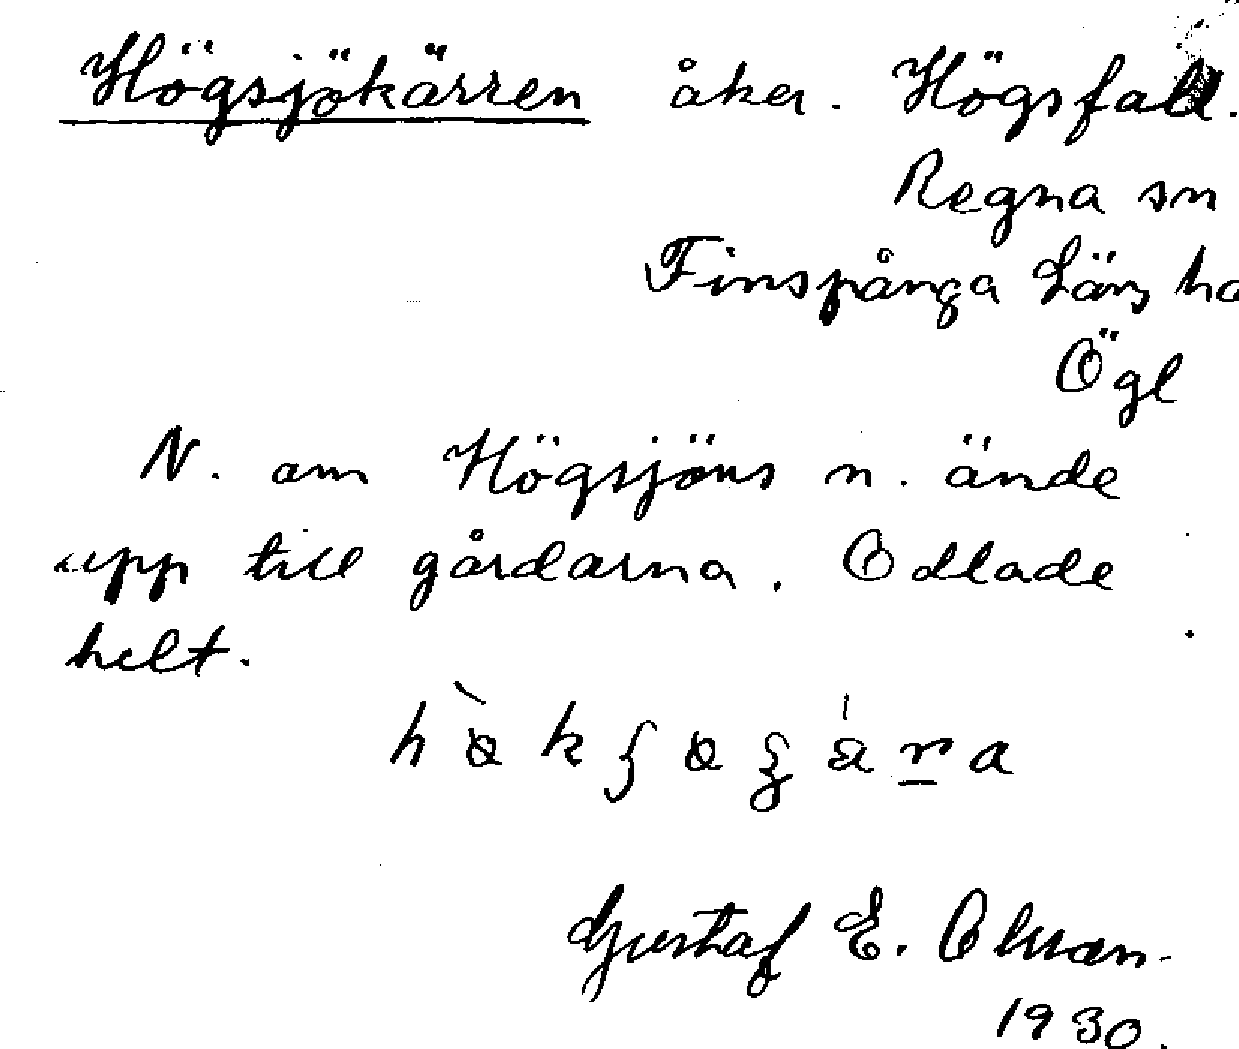 Högsjökärren åker. Högsfall.
Regna sn
Finspånga Läns ha
Ögl
N. om Högsjöns n. ände
upp till gårdarna. Odlade
helt.
Gustaf E. Olson.
1930.